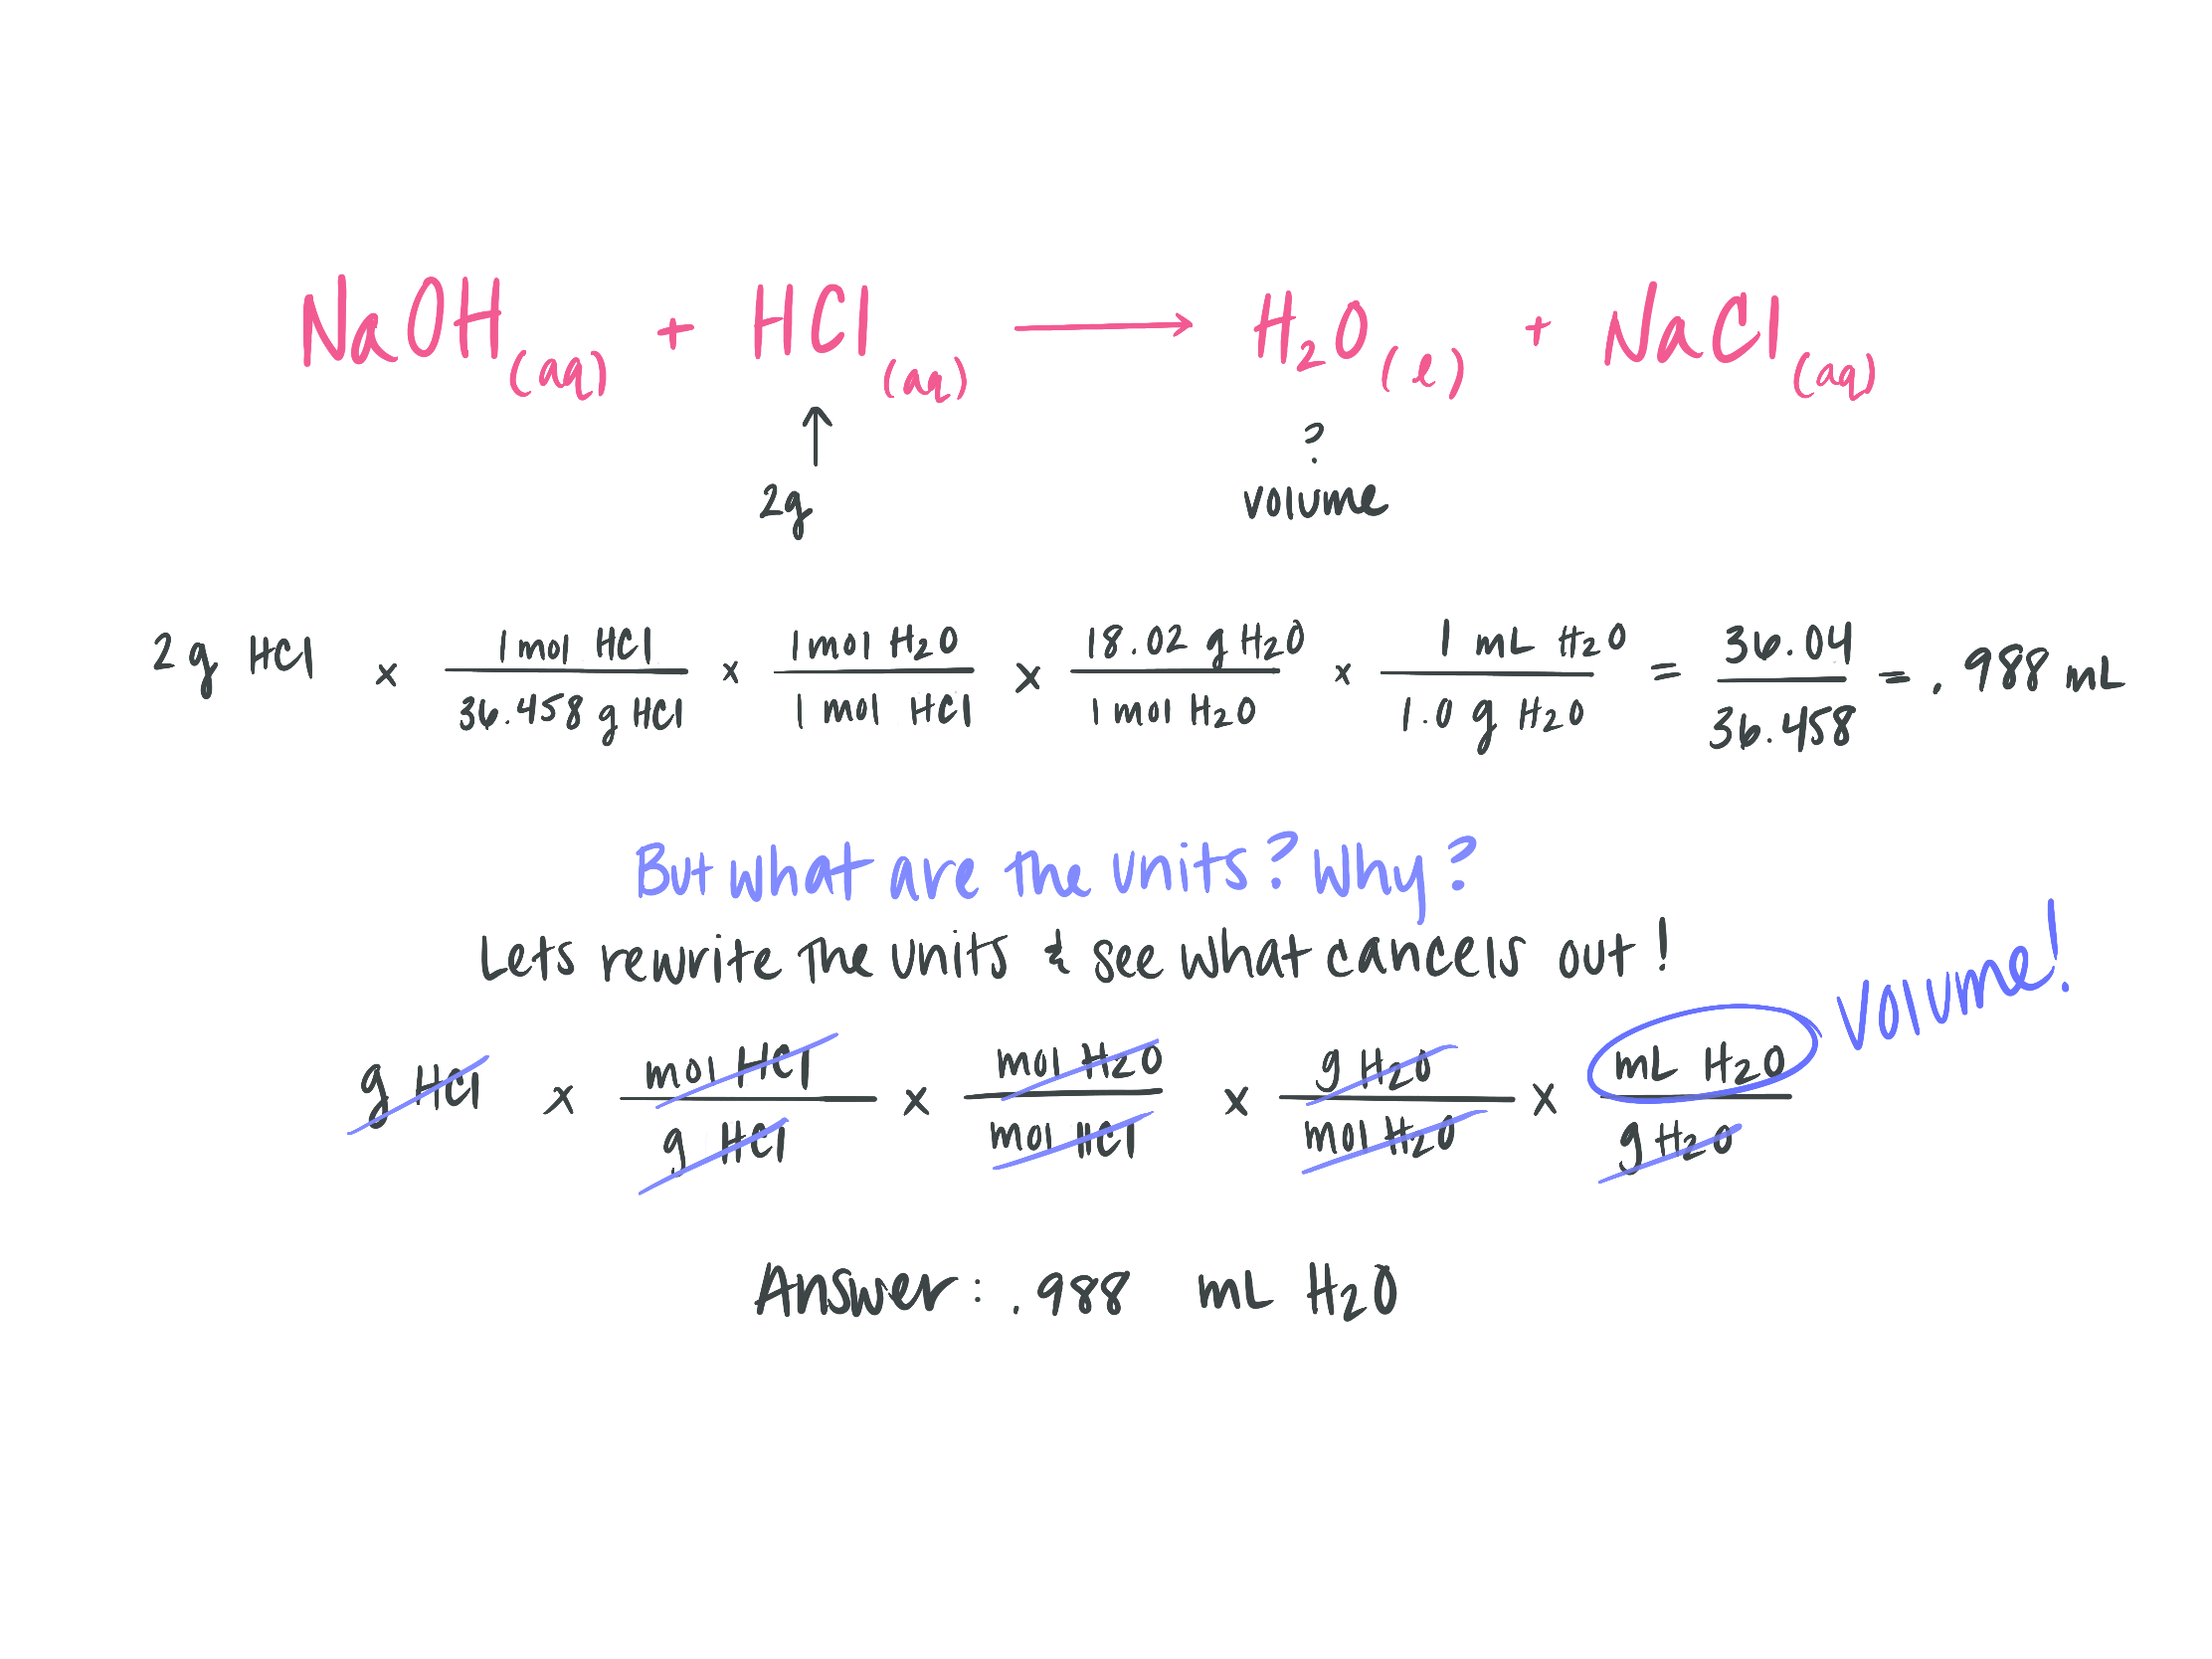 NaOH(aq) + HCl(aq) → H2O(l) + NaCl(aq)
↑ ?
2g volume
2g HCl x 1 mol HCl / 36.458 g HCl x 1 mol H2O / 1 mol HCl x 18.02 g H2O / 1 mol H2O x 1 mL H2O / 1.0 g H2O = 36.04 / 36.458 = .988 mL
But what are the units? Why?
Lets rewrite the units & see what cancels out!
volume!
g HCl x mol HCl / g HCl x mol H2O / mol HCl x g H2O / mol H2O x mL H2O / g H2O
Answer: .988 mL H2O